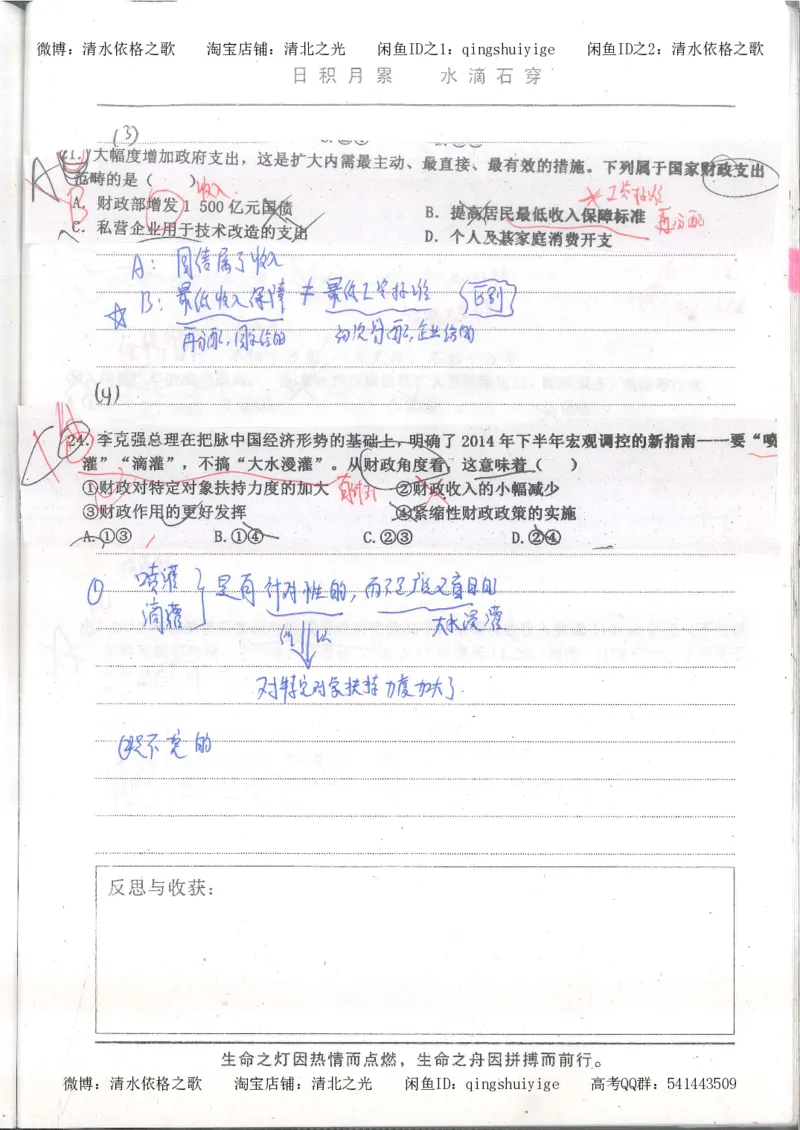 微博：清水依格之歌 淘宝店铺：清北之光 闲鱼ID之1：qingshuiyige 闲鱼ID之2：清水依格之歌
日积月累 水滴石穿
(3)
21. 大幅度增加政府支出，这是扩大内需最主动、最直接、最有效的措施。下列属于国家财政支出
范畴的是（ ）
B
收入
A. 财政部增发1 500亿元国债
B. 提高居民最低收入保障标准
再分配
C. 私营企业用于技术改造的支出
D. 个人及其家庭消费开支
A：国债属于收入
B：最低收入保障 ≠ 最低工资标准 区别
再分配，国家给的 初次分配，企业给的
(4)
24. 李克强总理在把脉中国经济形势的基础上，明确了2014年下半年宏观调控的新指南——要“喷
灌”“滴灌”，不搞“大水漫灌”。从财政角度看，这意味着（ ）
①财政对特定对象扶持力度的加大 ②财政收入的小幅减少
③财政作用的更好发挥 ④紧缩性财政政策的实施
A.①③ B.①④ C.②③ D.②④
① 喷灌 滴灌 是有针对性的，而不是广义盲目的
大水漫灌
所以
对特定对象扶持力度加大了.
反思与收获：
生命之灯因热情而点燃，生命之舟因拼搏而前行。
微博：清水依格之歌 淘宝店铺：清北之光 闲鱼ID：qingshuiyige 高考QQ群：541443509